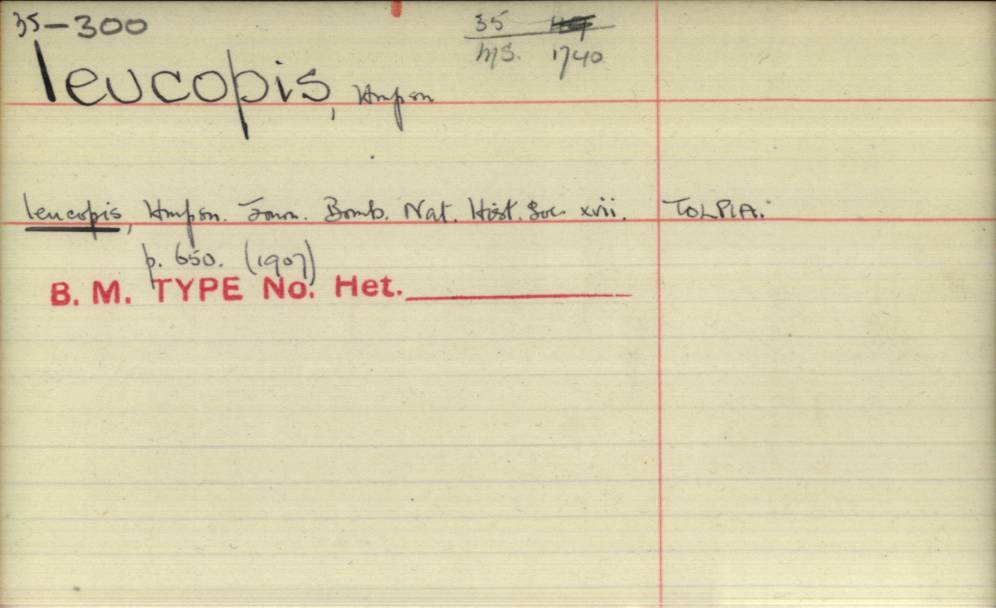 35-300
35
MS. 1740
leucopis, Hmpsn
leucopis, Hmpsn. Journ. Bomb. Nat. Hist. Soc. xvii. TOLPIA.
p. 650. (1907)
B. M. TYPE No. Het.